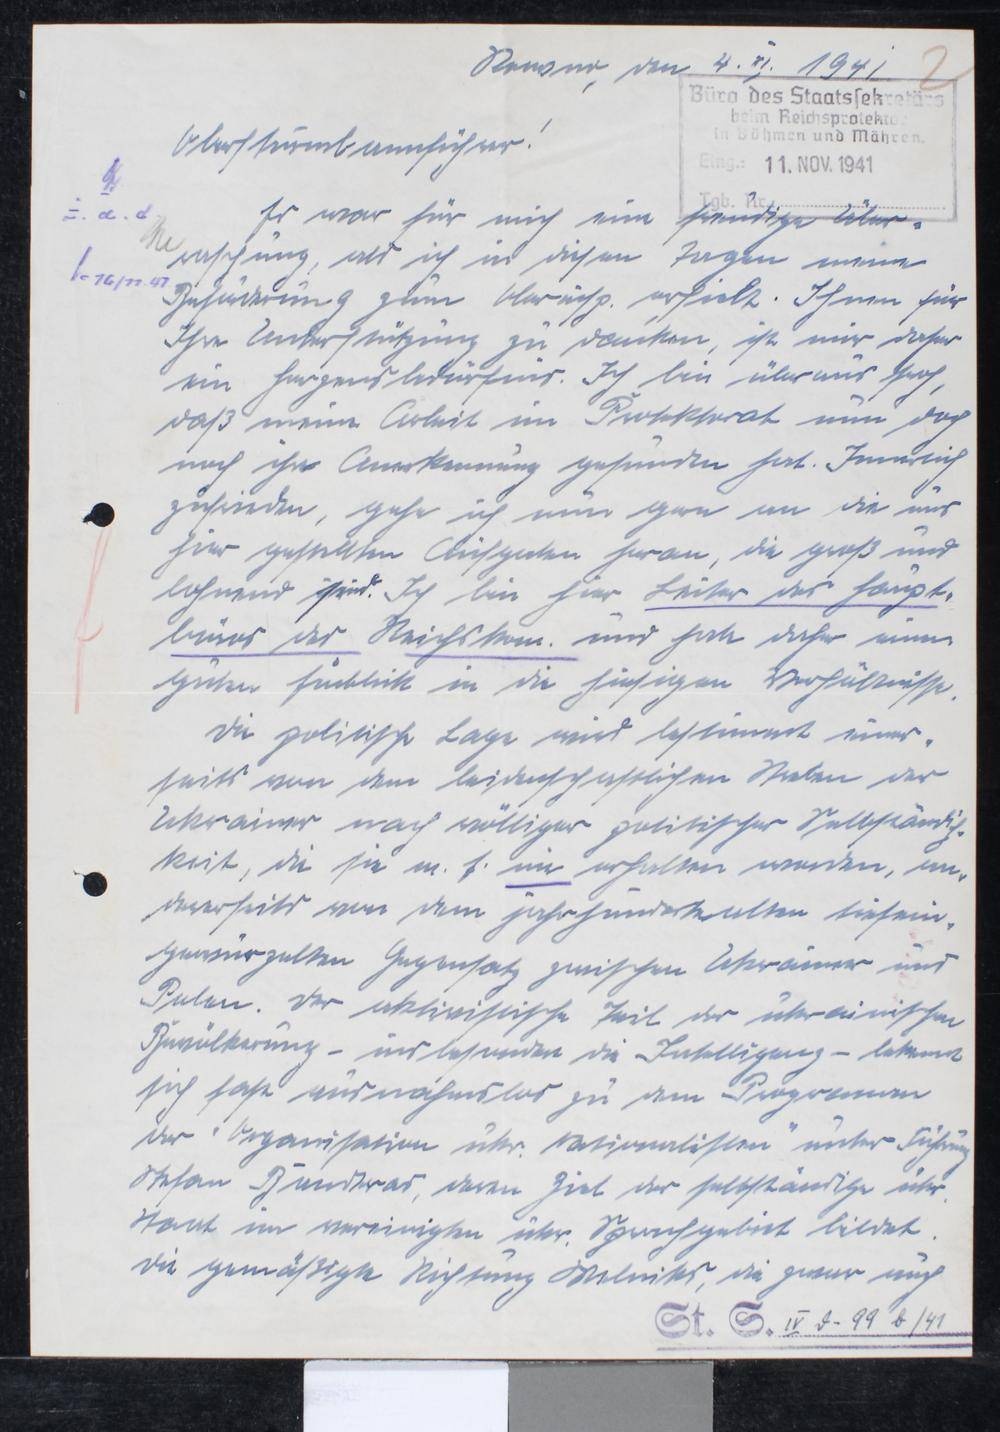 Rowno, den 4. XI. 1941
2
Büro des Staatssekretärs
beim Reichsprotektor
in Böhmen und Mähren.
Eing.: 11. NOV. 1941
Tgb. Nr.
Obersturmbannführer!
z. d. A.
16/11.41
Es war für mich eine freudige Über-
raschung, als ich in diesen Tagen meine
Beförderung zum erhielt. Ihnen für
Ihre Unterstützung zu danken, ist mir daher
ein Herzensbedürfnis. Ich bin überaus froh,
daß meine Arbeit im Protektorat nun doch
noch ihre Anerkennung gefunden hat. Innerlich
zufrieden, gehe ich nun gern an die uns
hier gestellten Aufgaben heran, die groß und
lohnend sind. Ich bin hier Leiter des Haupt-
büros des Reichskom. und habe daher einen
guten Einblick in die hiesigen Verhältnisse.
Die politische Lage wird bestimmt einer-
seits von dem leidenschaftlichen Streben der
Ukrainer nach völliger politischer Selbständig-
keit, die sie m. E. nie erhalten werden, an-
dererseits von dem jahrhundertealten tiefein-
gewurzelten Gegensatz zwischen Ukrainer und
Polen. Der aktivistische Teil der ukrainischen
Bevölkerung - insbesondere die Intelligenz - bekennt
sich fast ausnahmslos zu dem Programm
der "Organisation ukr. Nationalisten" unter Führung
Stefan Banderas, deren Ziel der selbständige ukr.
Staat im vereinigten ukr. Sprachgebiet bildet.
Die gemäßigte Richtung Melniks, die zwar auch
St. S. IV D - 99 b/41